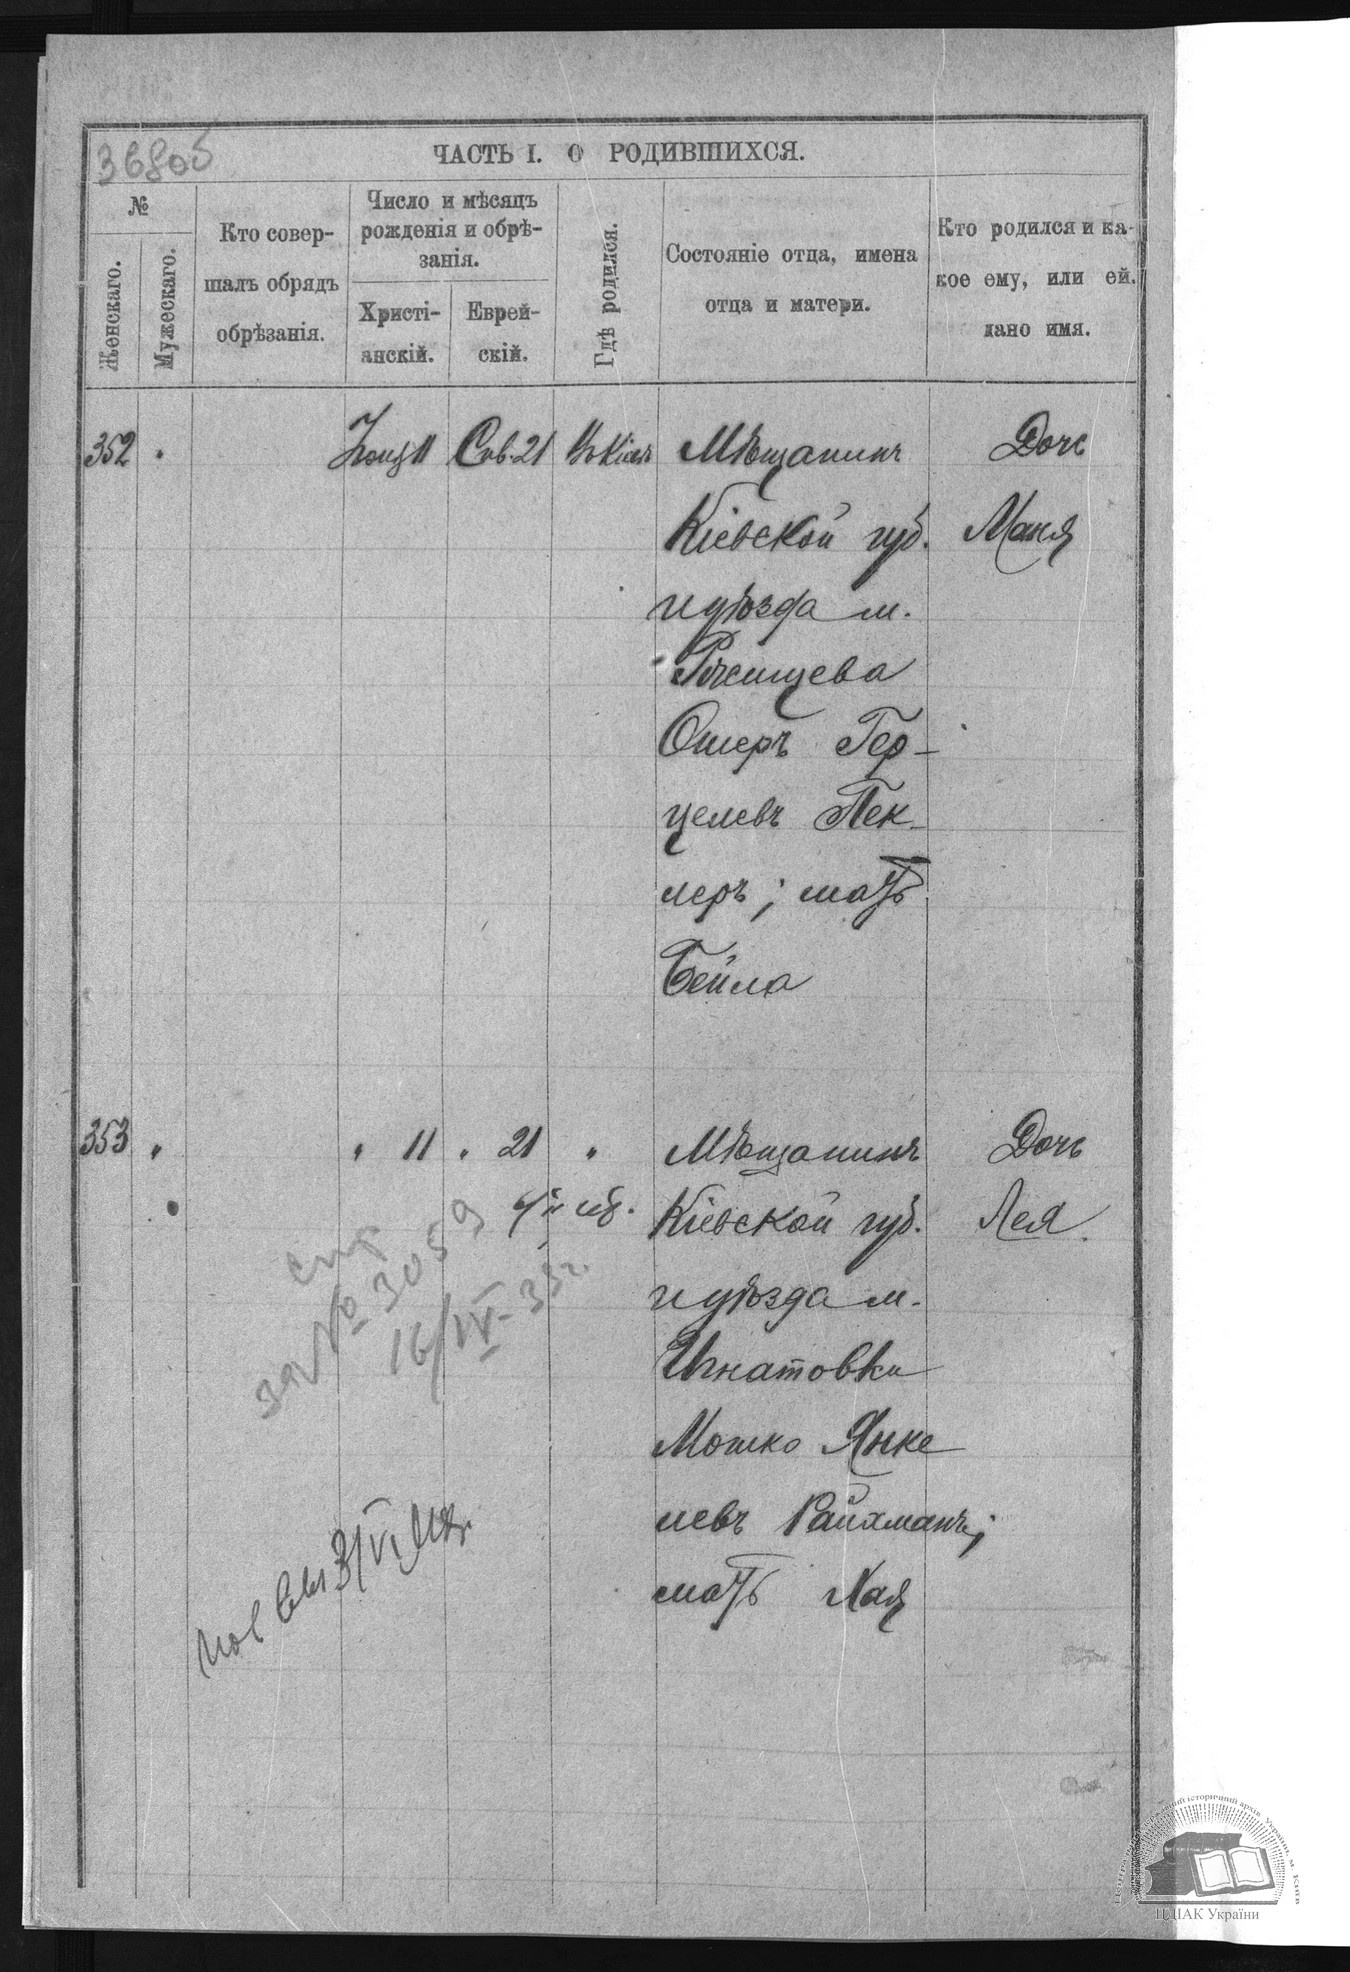 368об
ЧАСТЬ I. О РОДИВШИХСЯ.
№
Женскаго.
Мужескаго.
Кто совер-
шалъ обрядъ
обрѣзанія.
Число и мѣсяцъ
рожденія и обрѣ-
занія.
Христі-
анскій.
Еврей-
скій.
Гдѣ родился.
Состояніе отца, имена
отца и матери.
Кто родился и ка-
кое ему, или ей,
дано имя.
352 " 11 21 Мѣщанинъ Дочь
Кіевской губ. Маня
и уѣзда м.
Ржищева
Ошеръ Гер-
целевъ Пек-
леръ; мать
Бейла
353 " " 11 " 21 " Мѣщанинъ Дочь
Кіевской губ. Лея.
и уѣзда м.
Игнатовки
Мошко Янке
левъ Райхманъ;
мать Хая
спр
за № 3059
16/IV-33г.
ЦДІАК України